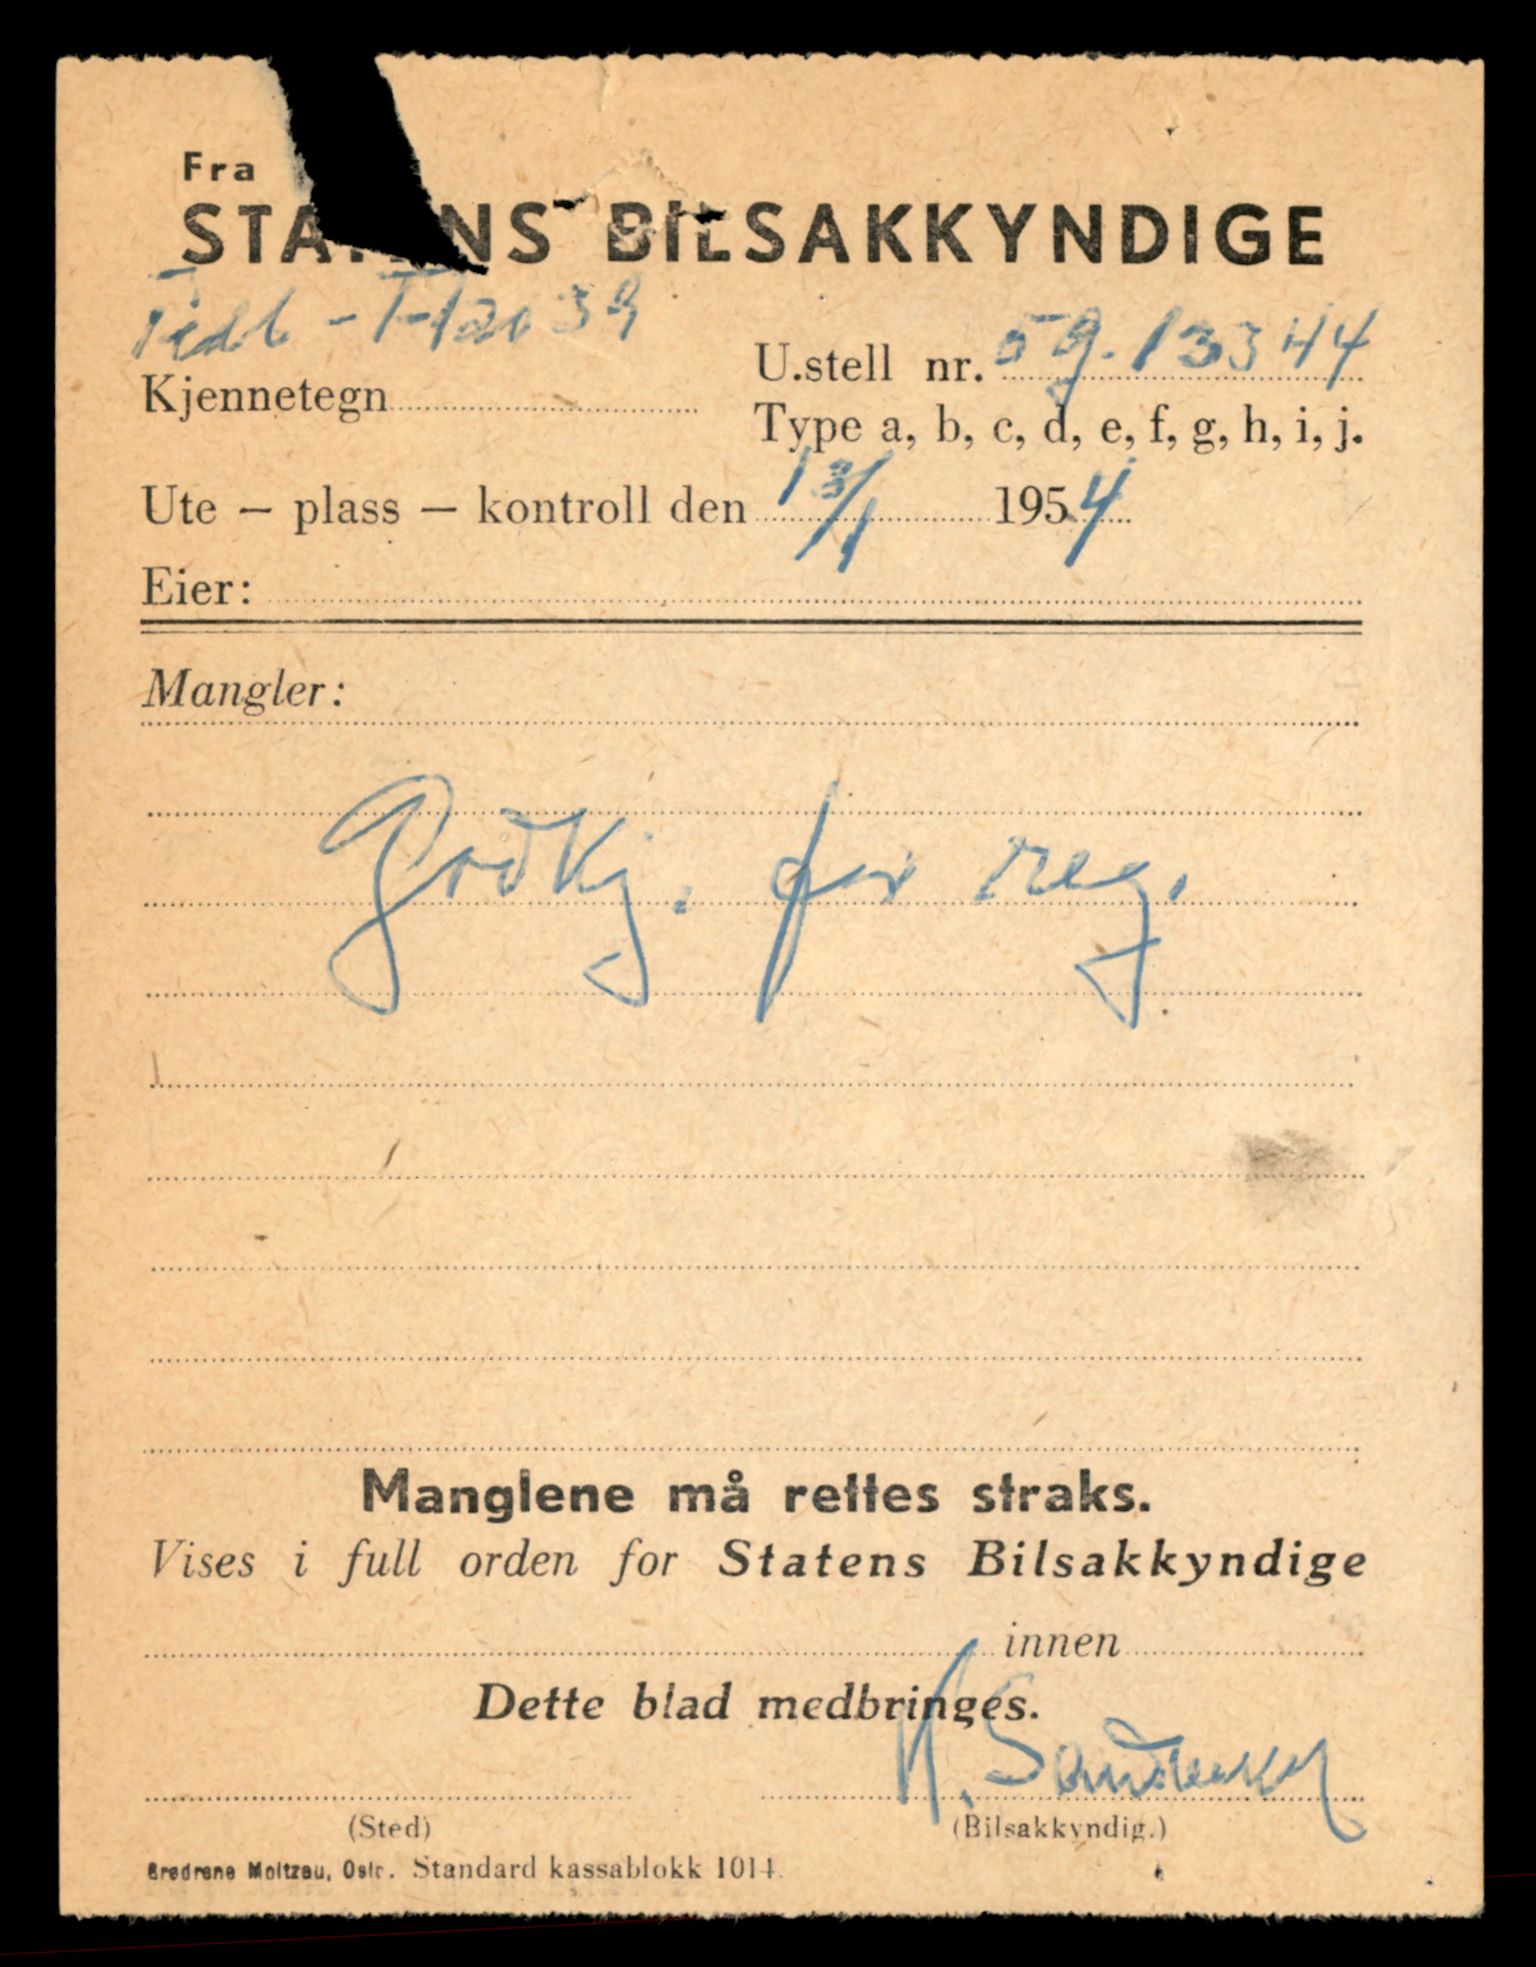 Fra
STATENS BILSAKKYNDIGE
Tidl - T-12039
U.stell nr. 59.13344
Kjennetegn
Type a, b, c, d, e, f, g, h, i, j.
Ute – plass – kontroll den 13/1 1954
Eier:
Mangler:
Godkj. for reg.
Manglene må rettes straks.
Vises i full orden for Statens Bilsakkyndige
innen
Dette blad medbringes.
(Sted) (Bilsakkyndig.)
Brødrene Moltzau, Oslo. Standard kassablokk 1014.